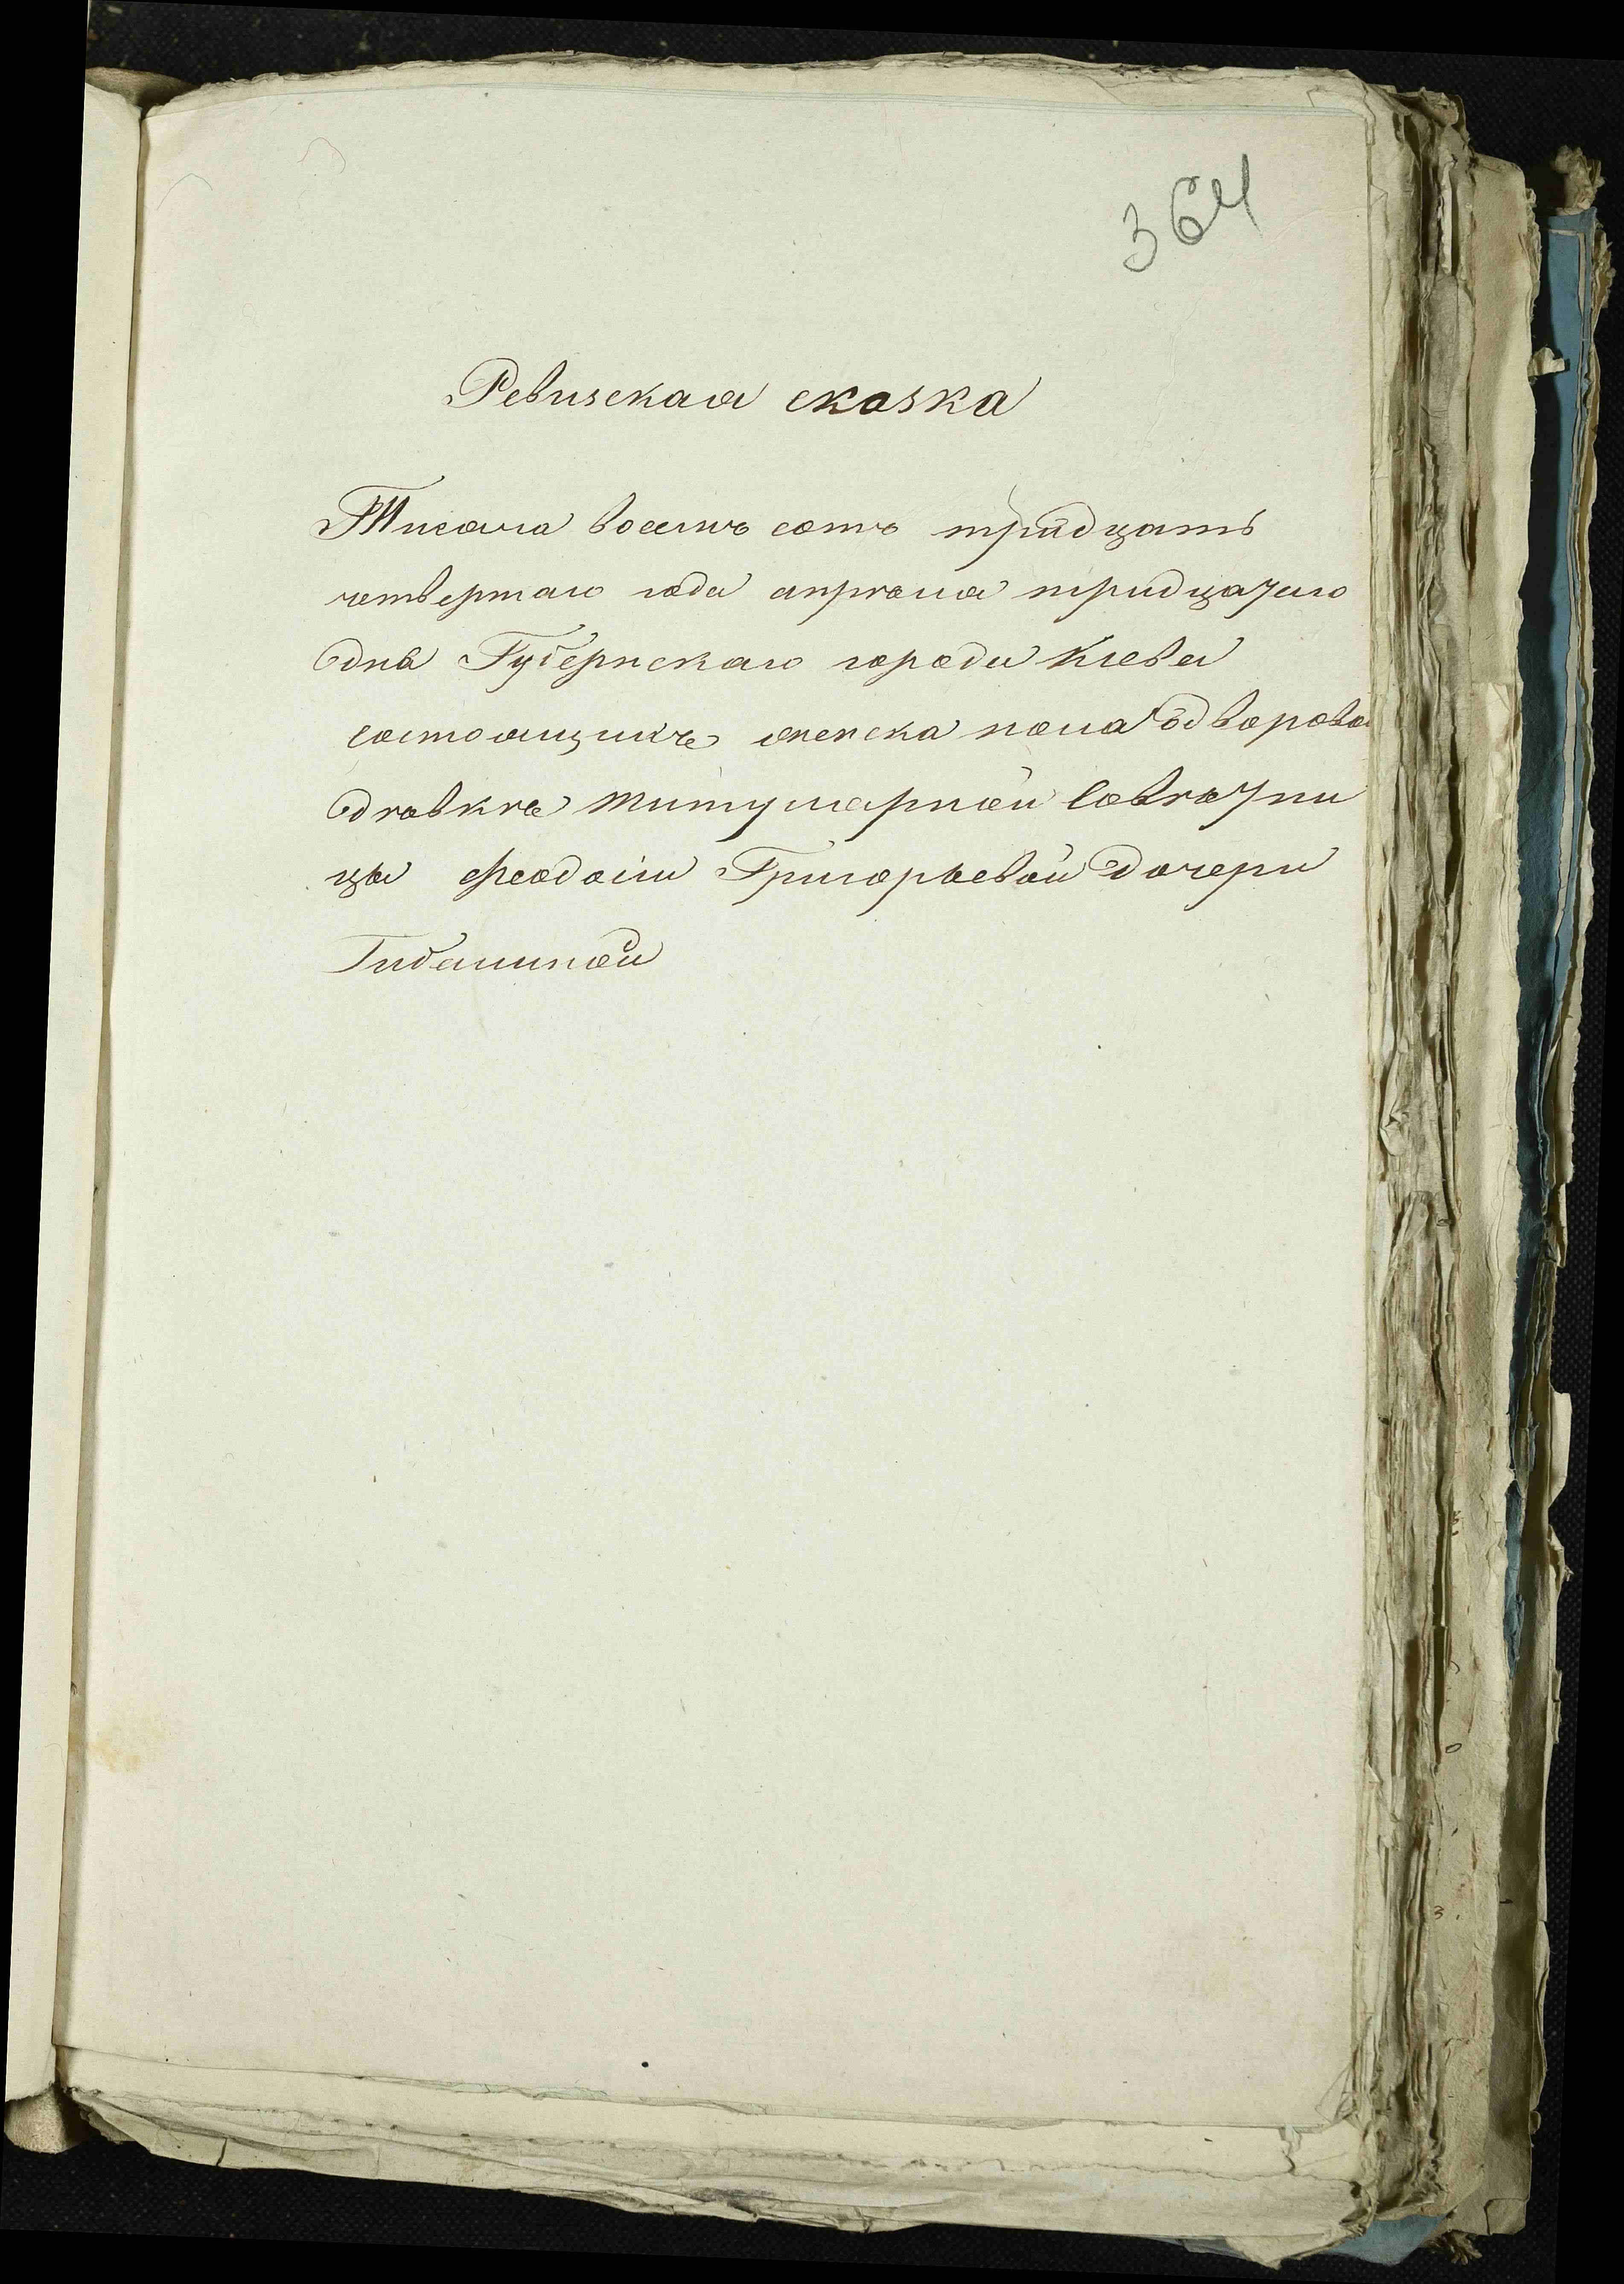 364
Ревизская сказка
Тисяча восемъ сотъ тридцать
четвертаго года апреля тридцатаго
дня Губернскаго города Киева
состоящихъ женска пола о дворово
девке титулярной Советни
цы Феодосіи Григорьевой дочери